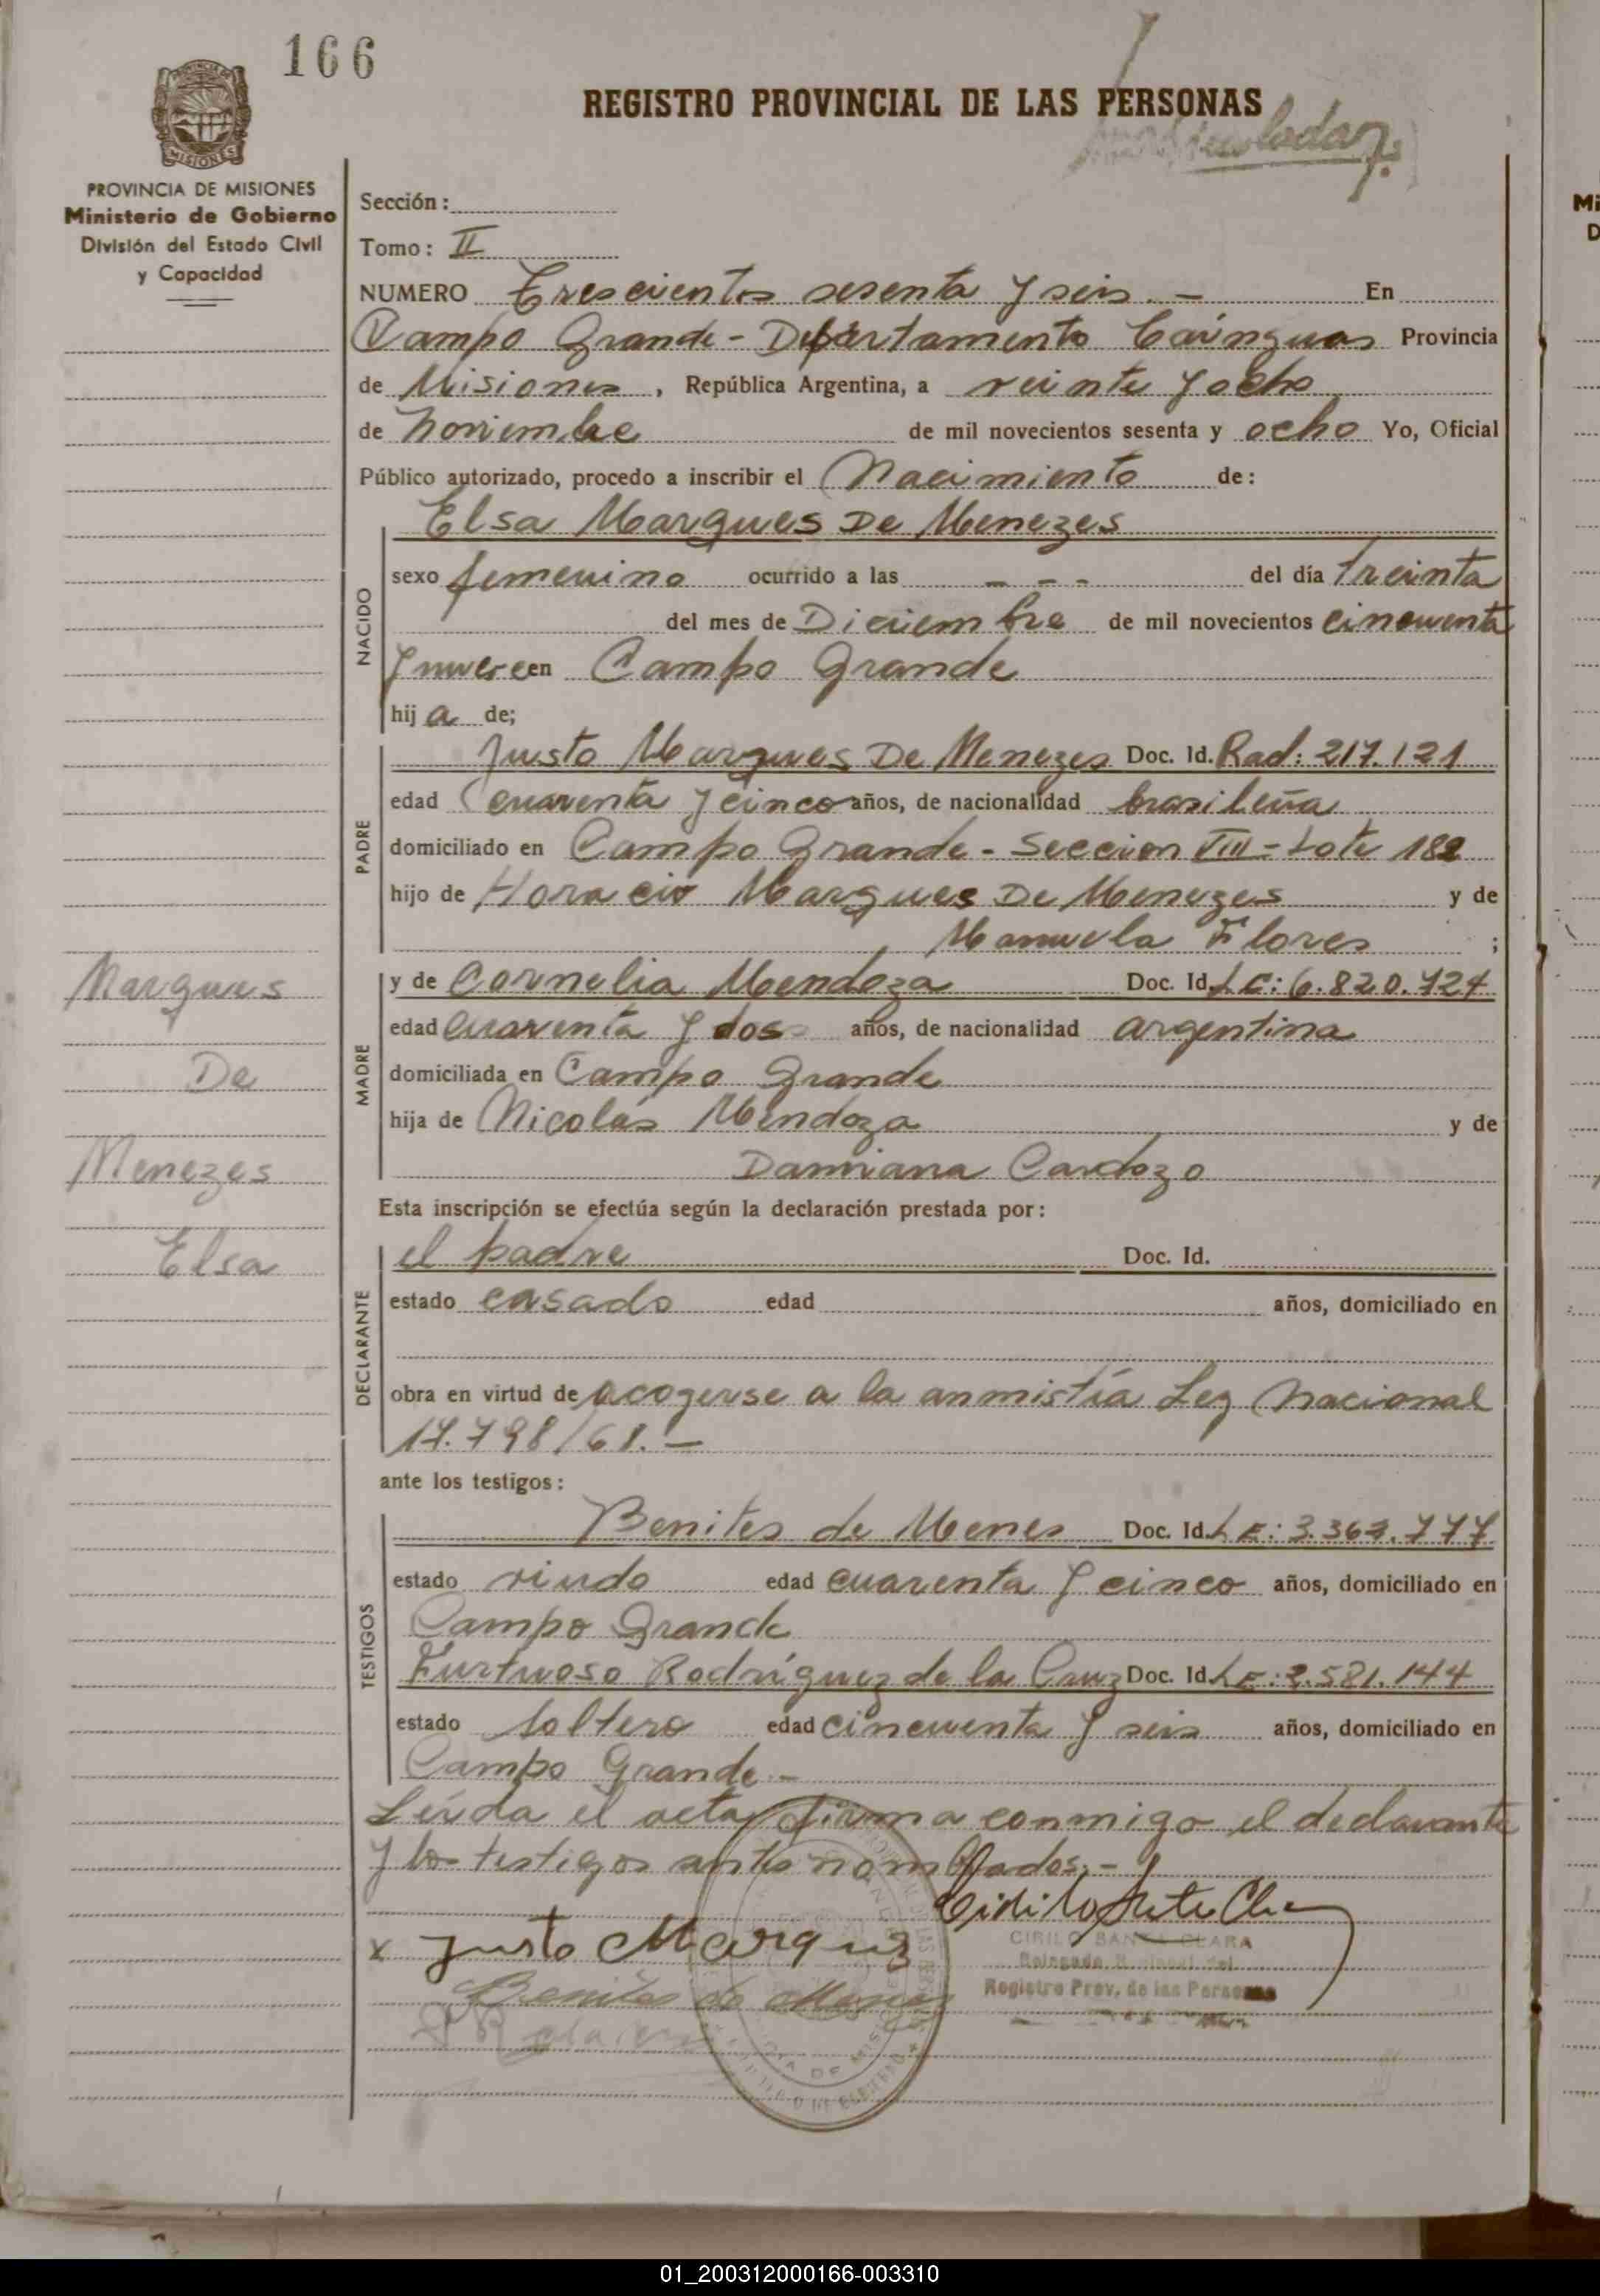 166
REGISTRO PROVINCIAL DE LAS PERSONAS
MISIONES
PROVINCIA DE MISIONES
Ministerio de Gobierno
División del Estado Civil
y Capacidad
Sección:
Tomo: II
NUMERO Trescientos sesenta y seis.- En
Campo Grande - Departamento Cainguas Provincia
de Misiones, República Argentina, a veinte y ocho
de noviembre de mil novecientos sesenta y ocho Yo, Oficial
Público autorizado, procedo a inscribir el Nacimiento de:
Elsa Marques De Menezes
NACIDO
sexo femenino ocurrido a las - - - del día treinta
del mes de Diciembre de mil novecientos cincuenta
y nueve en Campo Grande
hij a de;
PADRE
Justo Marques De Menezes Doc. Id. Rad: 217.121
edad cuarenta y cinco años, de nacionalidad brasileña
domiciliado en Campo Grande - Seccion VIII - Lote 182
hijo de Horacio Marques De Menezes y de
Manuela Flores ;
MADRE
y de Cornelia Mendoza Doc. Id. LC: 6.820.724
edad cuarenta y dos años, de nacionalidad argentina
domiciliada en Campo Grande
hija de Nicolás Mendoza y de
Damiana Cardozo
Marques
De
Menezes
Elsa
Esta inscripción se efectúa según la declaración prestada por:
DECLARANTE
el padre Doc. Id.
estado casado edad años, domiciliado en
obra en virtud de acogerse a la anmistía Ley Nacional
17.798/68.-
ante los testigos:
TESTIGOS
Benites de Menes Doc. Id. LE: 3.363.777
estado viudo edad cuarenta y cinco años, domiciliado en
Campo Grande
Furtuoso Rodríguez de la Cruz Doc. Id. LE: 2.581.144
estado soltero edad cincuenta y seis años, domiciliado en
Campo Grande.-
Leída el acta, firma conmigo el declarante
y los testigos antes nombrados.-
x Justo Marques
CIRILO SANTA CLARA
Registro Prov. de las Personas
Benites de Menes
01_200312000166-003310